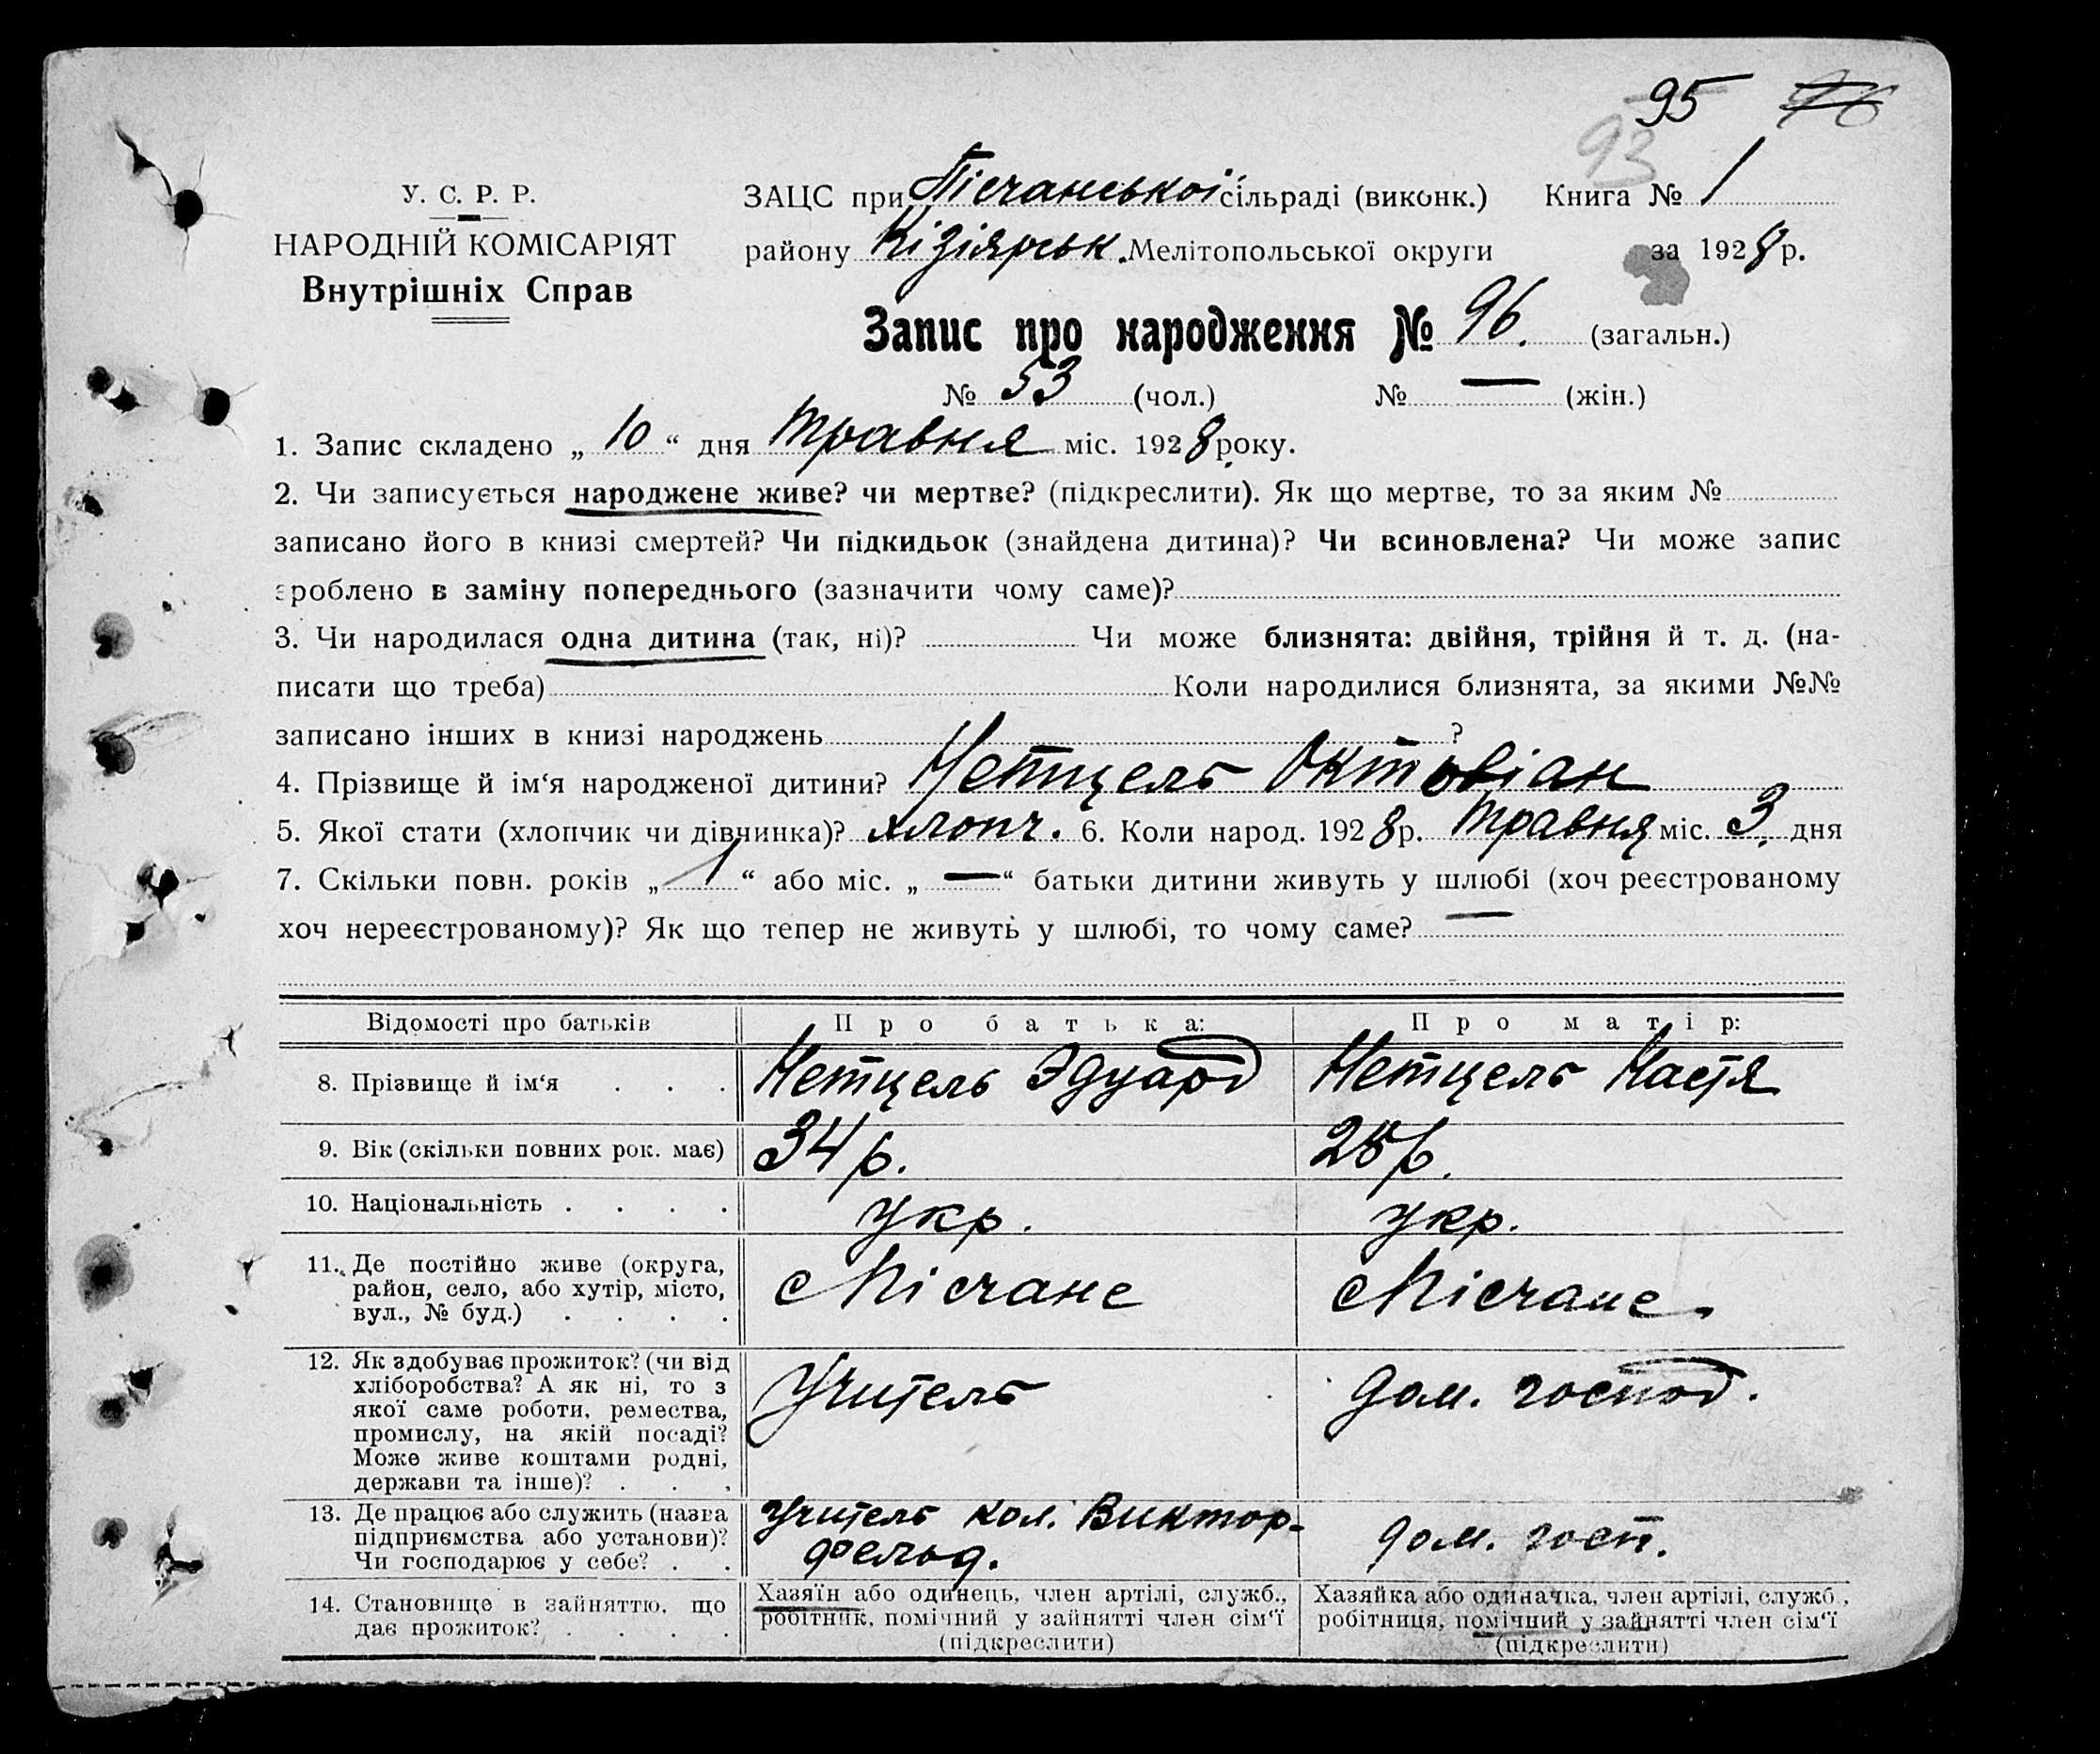 95 96
93
У. С. Р. Р.
НАРОДНІЙ КОМІСАРІЯТ
Внутрішніх Справ
ЗАЦС при Пісчанської сільраді (виконк.) Книга № 1
району Кізіярськ. Мелітопольської округи за 1928 р.
Запис про народження № 96. (загальн.)
№ 53 (чол.) № — (жін.)
1. Запис складено „ 10 “ дня Травня міс. 1928 року.
2. Чи записується народжене живе? чи мертве? (підкреслити). Як що мертве, то за яким №
записано його в книзі смертей? Чи підкидьок (знайдена дитина)? Чи всиновлена? Чи може запис
зроблено в заміну попереднього (зазначити чому саме)?
3. Чи народилася одна дитина (так, ні)? Чи може близнята: двійня, трійня й т. д. (на-
писати що треба) Коли народилися близнята, за якими №№
записано інших в книзі народжень ?
4. Прізвище й ім‘я народженої дитини? Нетцель Октовіан
5. Якої стати (хлопчик чи дівчинка)? хлопч. 6. Коли народ. 1928 р. Травня міс. 3. дня
7. Скільки повн. років „ 1 “ або міс. „ — “ батьки дитини живуть у шлюбі (хоч реєстрованому
хоч нереєстрованому)? Як що тепер не живуть у шлюбі, то чому саме? —
Відомості про батьків Про батька: Про матір:
8. Прізвище й ім‘я . . . Нетцель Эдуард Нетцель Настя
9. Вік (скільки повних рок. має) 34 р. 28 р.
10. Національність . . . . укр. укр.
11. Де постійно живе (округа,
район, село, або хутір, місто,
вул., № буд.) . . . .
с Пісчане с Пісчане.
12. Як здобуває прожиток? (чи від
хліборобства? А як ні, то з
якої саме роботи, ремества,
промислу, на якій посаді?
Може живе коштами родні,
держави та інше)? . . .
Учитель дом. господ.
13. Де працює або служить (назва
підприємства або установи)?
Чи господарює у себе? . .
Учитель кол. Виктор-
фельд.
дом. госп.
14. Становище в зайняттю, що
дає прожиток? . . . .
Хазяїн або одинець, член артілі, служб.,
робітник, помічний у зайнятті член сім‘ї
(підкреслити)
Хазяйка або одиначка, член артілі, служб.,
робітниця, помічний у зайнятті член сім‘ї
(підкреслити)